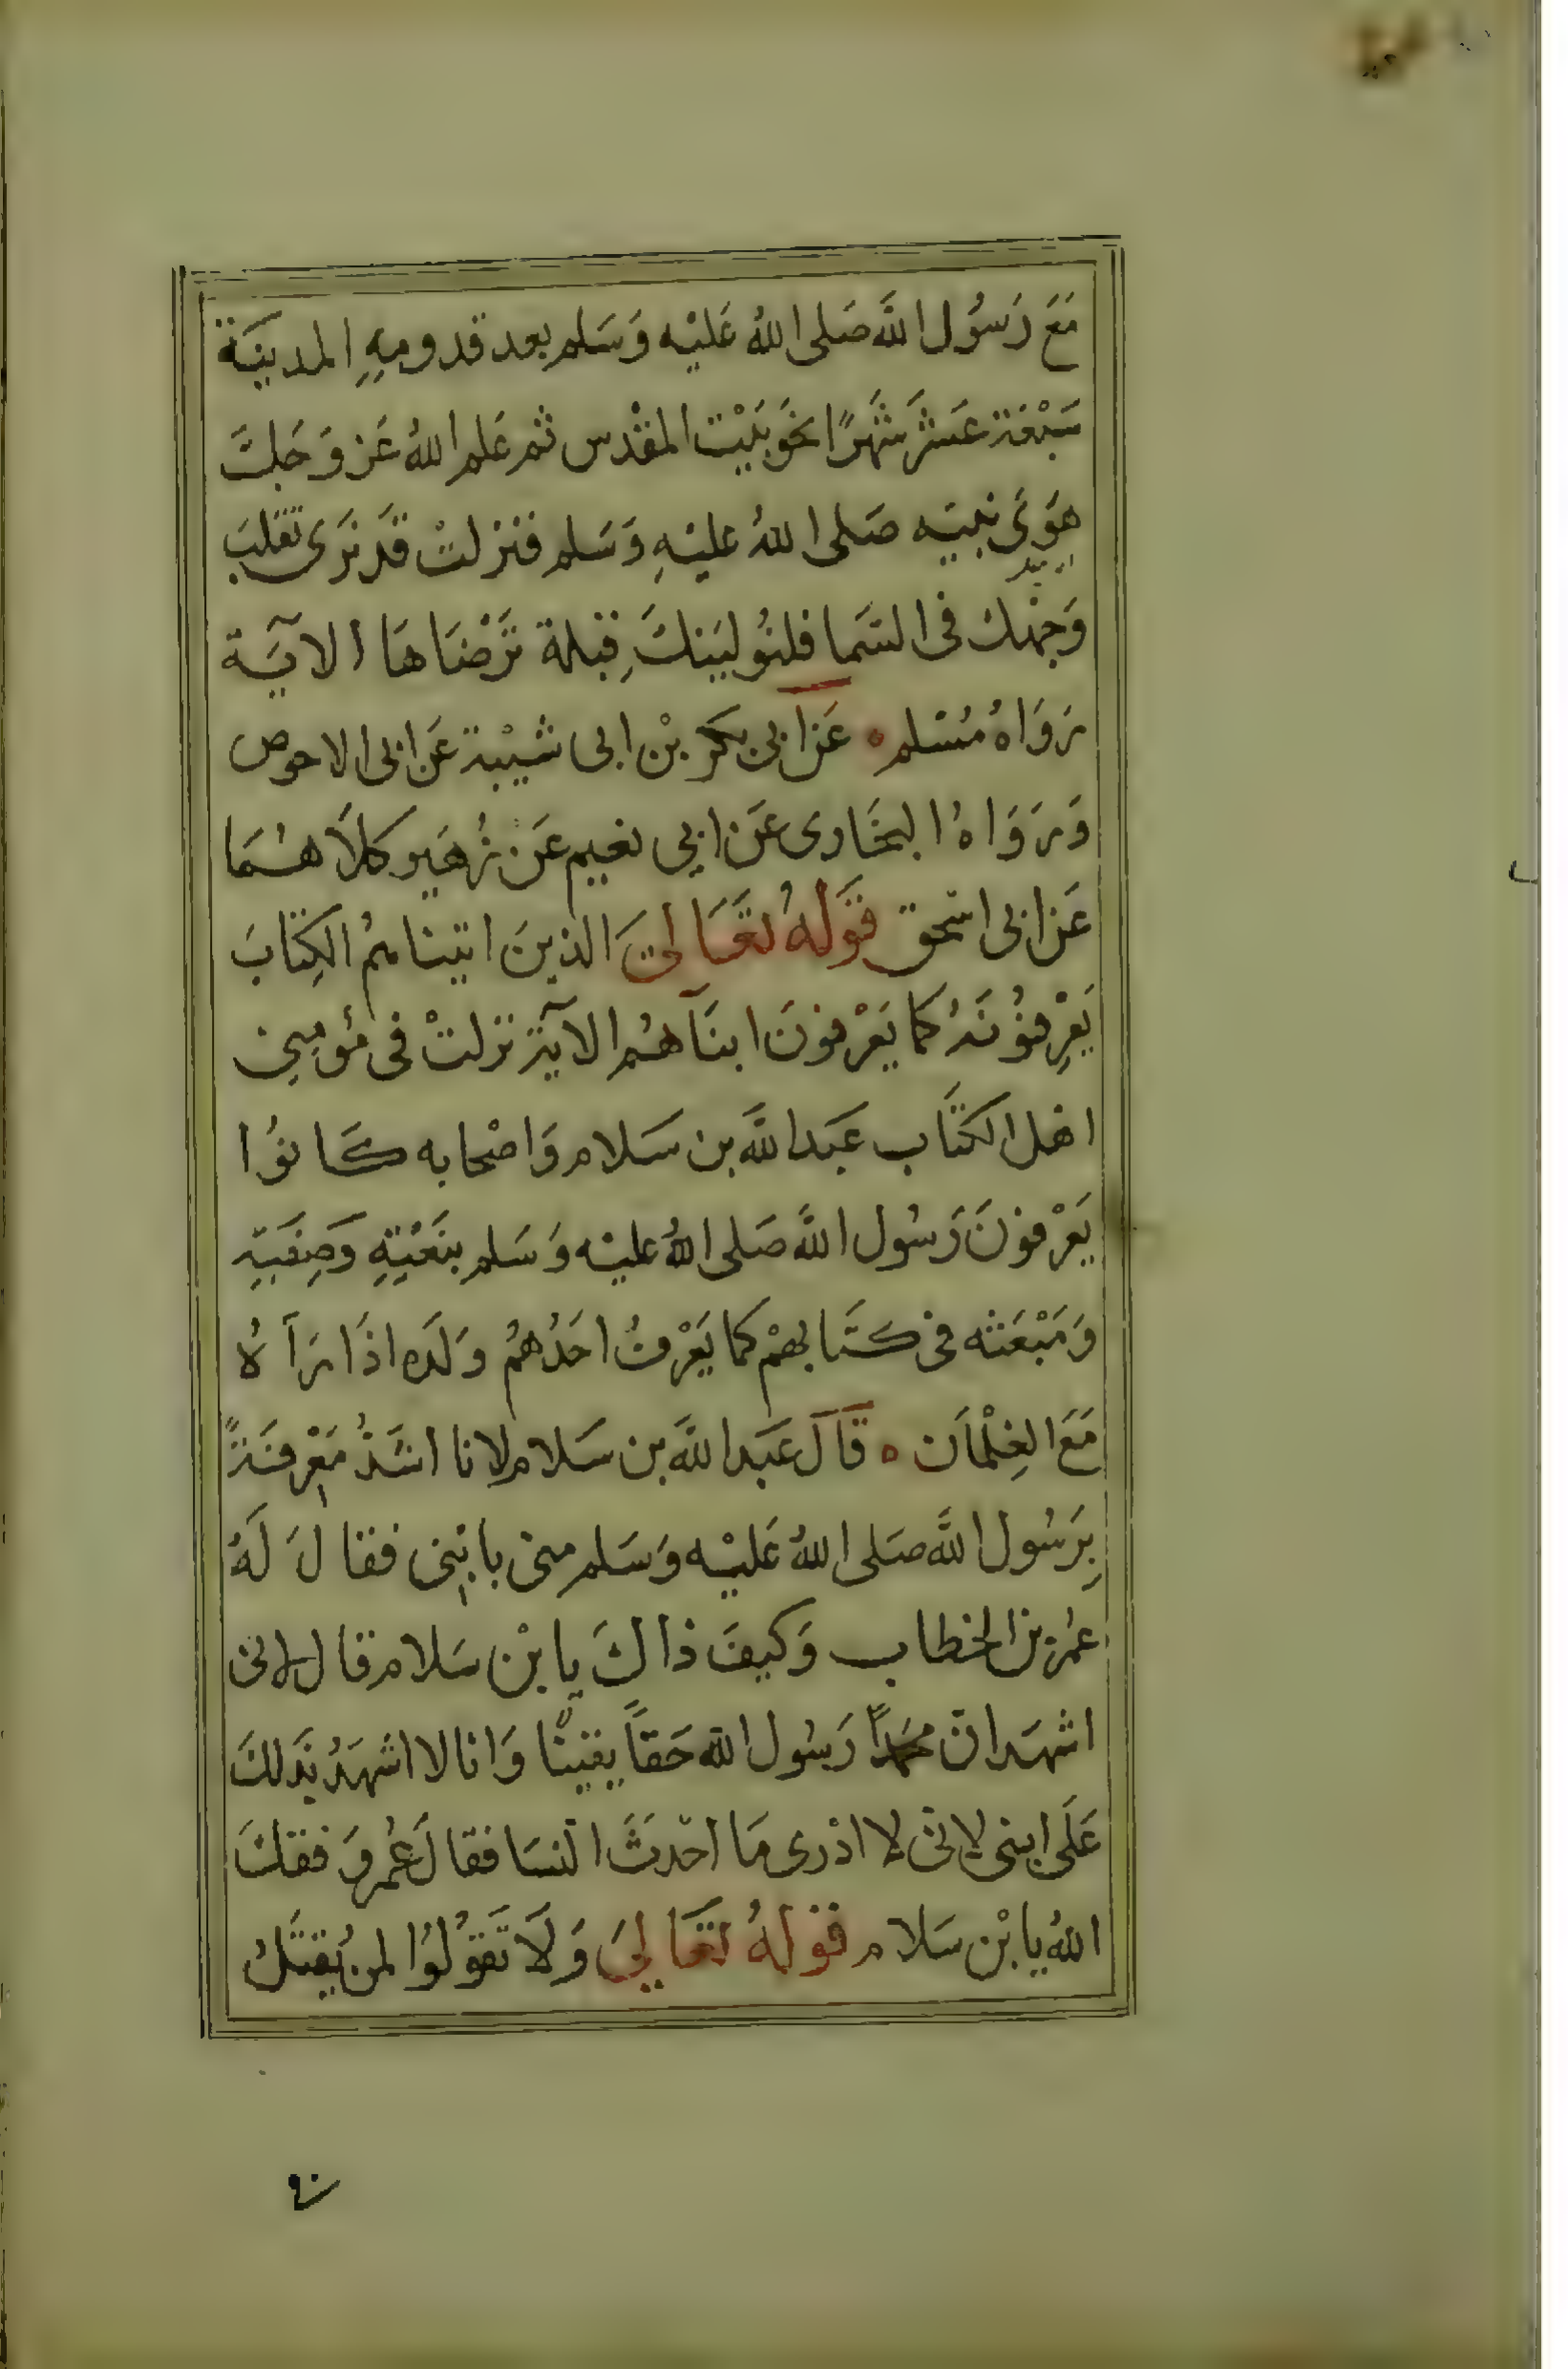 مَعَ رَسُول اللَّه صَلى اللهُ عَليْه وَسَلم بعد قدومِهِ المدينَة
سَبْعَة عَشَرَ شَهرًا نحَو بَيْت المقْدس ثم عَلم اللهُ عَز وَجَلَّ
هوَى نبيّه صَلى اللهُ عليْهِ وَسَلم فنزلتْ قَد نَرَى تقلبَ
وَجْهك فى السَما فلنُولينكَ قِبلة تَرْضَاهَا الآيَة
رَوَاهُ مُسْلم ه عَن أبى بَكر بْن ابى شيْبة عَن ابى الاحوص
وَرَوَاهُ البخَارى عَن ابي نعيم عَن زُهَير كلاَهُمَا
عَن ابى اسْحق قَولهُ تعَالىَ الذينَ اتينامُ الكِتابَ
يَعْرِفُونَهُ كما يَعْرفونَ ابنَآهُم الآية نزلتْ فى مُؤمِنى
اهْل الكتَاب عَبَد اللَّه بن سَلام وَاصْحابه كَانوُا
يَعْرفونَ رَسُول اللَّه صَلى اللهُ عليْه وَسَلم بنَعْتِهِ وَصِفَتِهِ
وَمَبْعَثه فى كتَابهمْ كما يَعْرفُ احَدُهُمْ وَلَده اذَا رَآهُ
مَعَ الغِلْمَان ه قَالَ عَبَد اللَّه بن سَلام لانا اشَدُّ مَعْرفَةً
بِرَسُول اللَّه صَلى اللهُ عَليْه وَسَلم منى بابْنى فقالَ لَهُ
عُمر بن الخطاب وَكيفَ ذالكَ يا بْن سَلام قال لانى
اشهَد ان محمَداً رَسُول الله حَقاً يقينًا وَانا لا اشهَدُ بذَلكَ
عَلَى ابنى لانى لا ادْرى مَا احْدثَ النسَا فقالَ عُمر وَفقكَ
اللهُ يا بْن سَلام قوْلهُ تعَالىَ وَلاَ تَقوُلوُا لمن يُقتَلُ